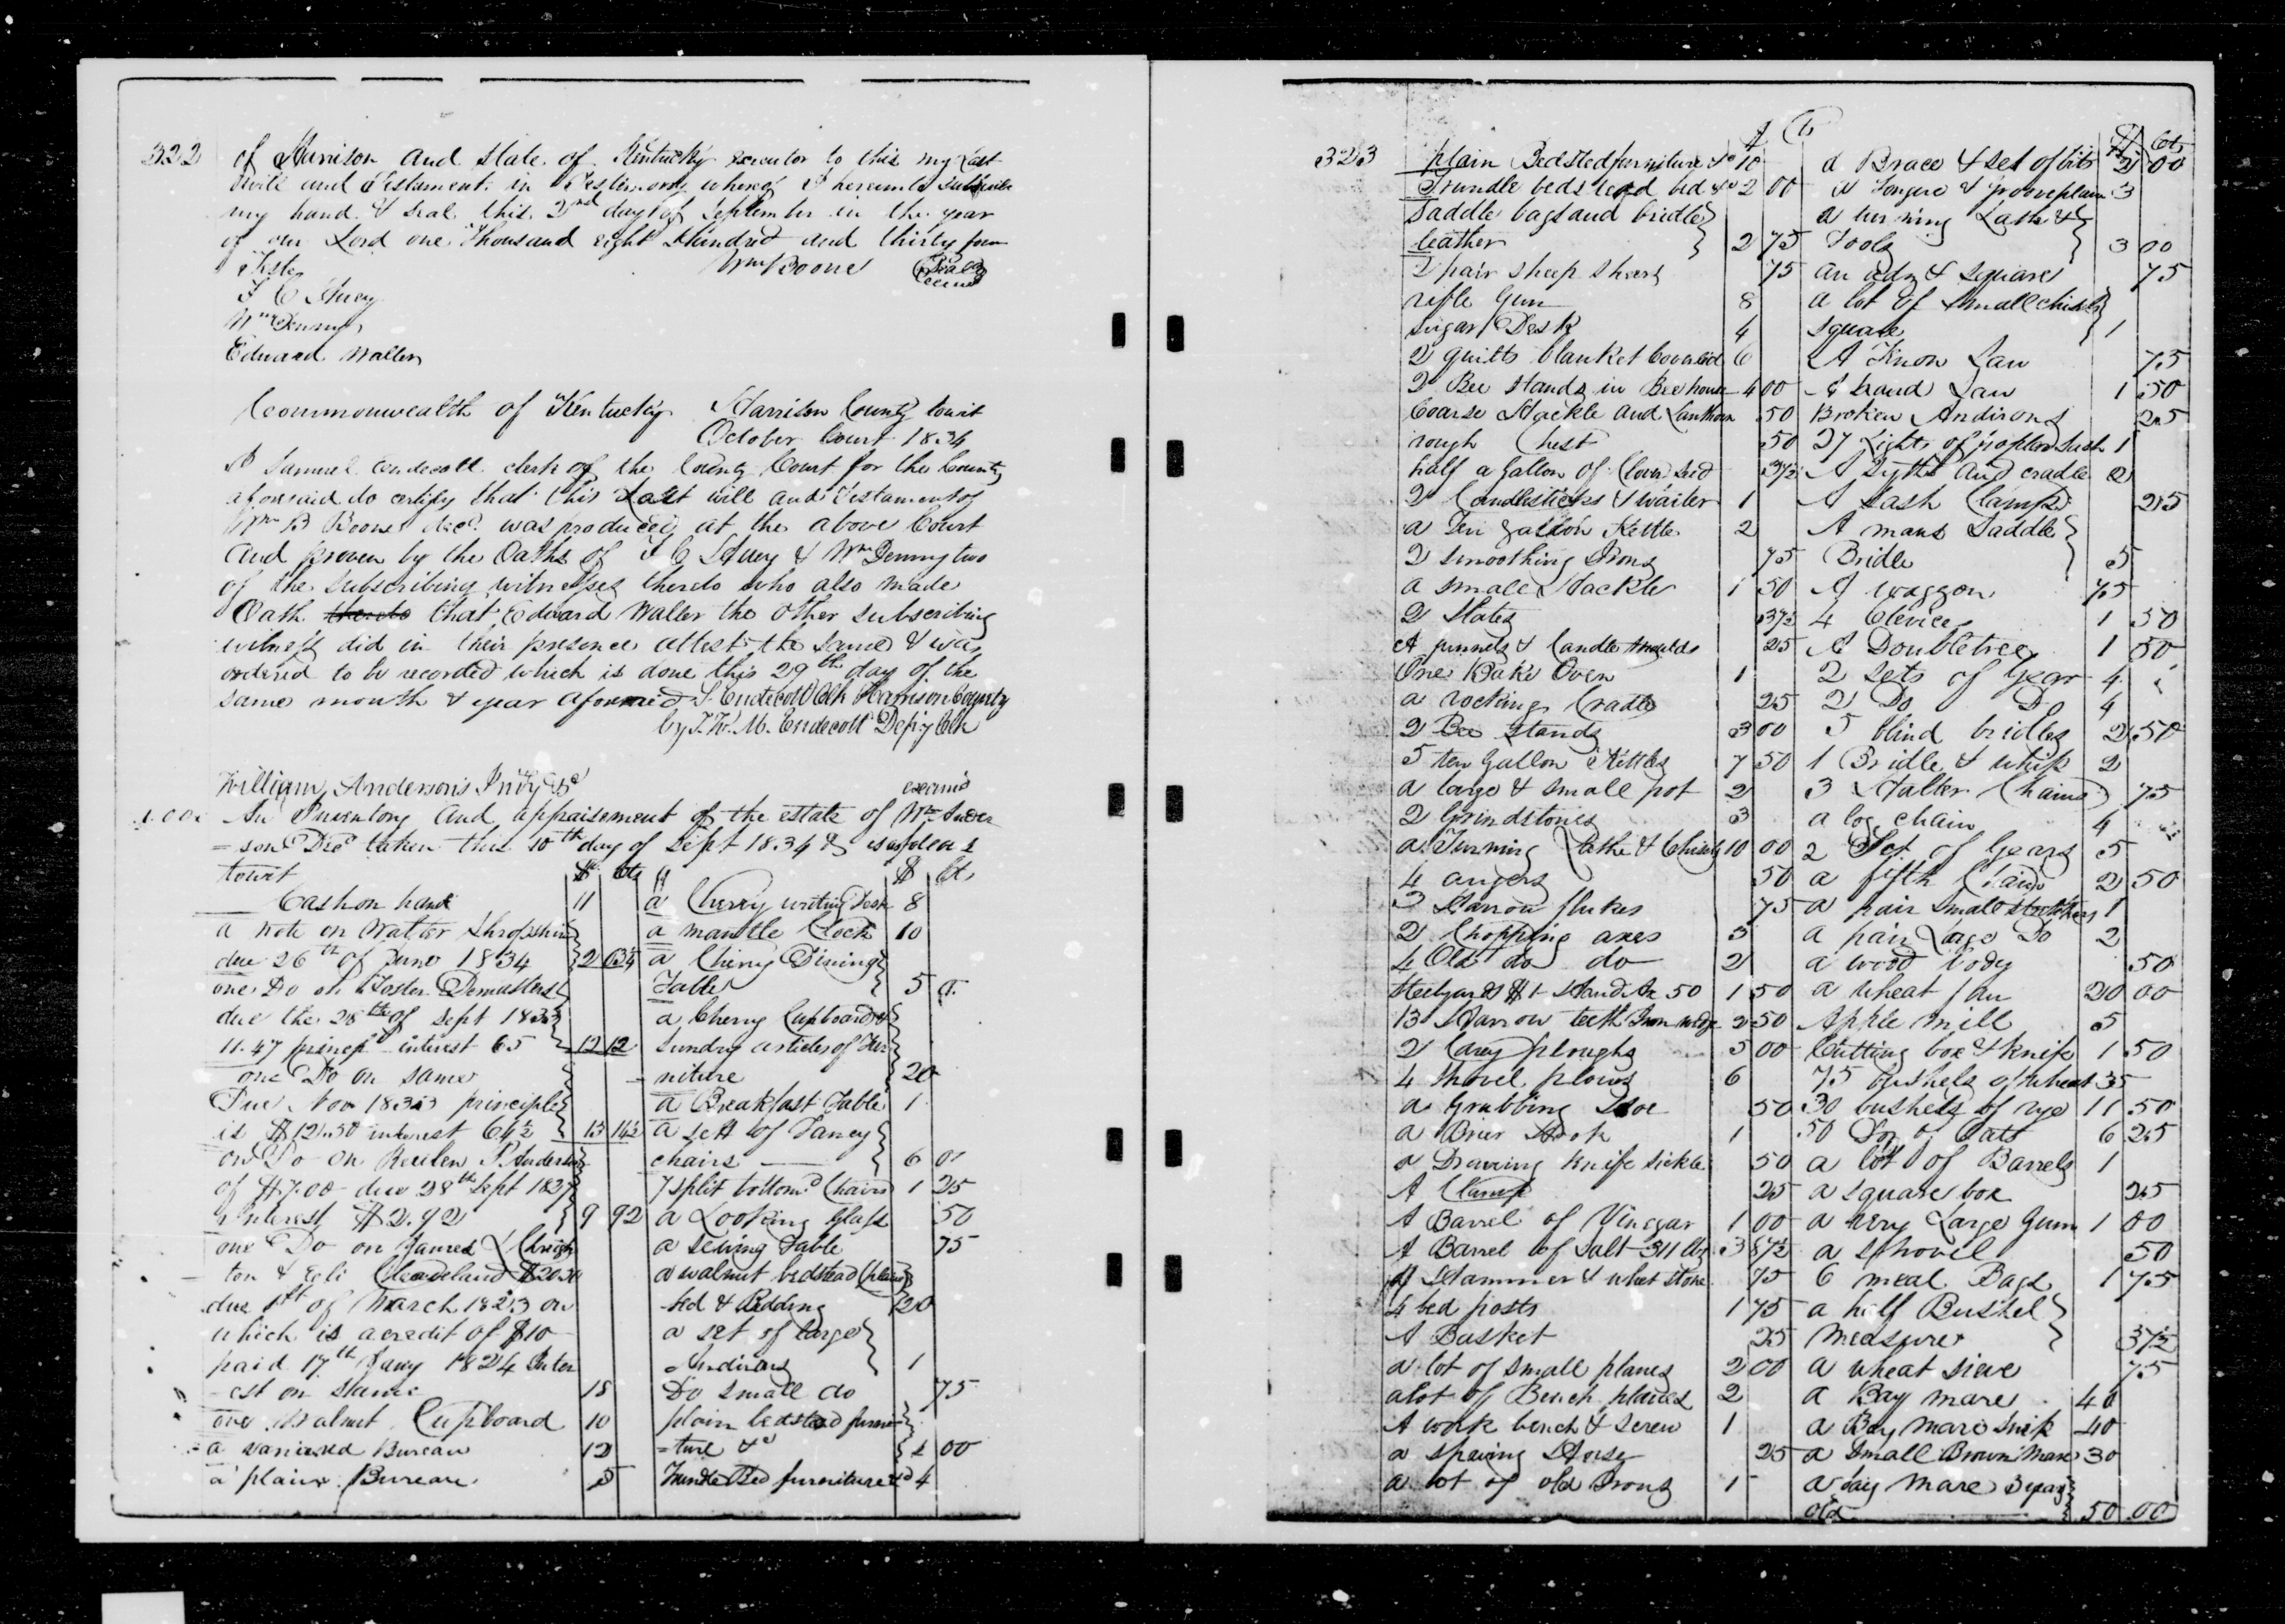 322
of Harrison and state of Kentucky executor to this my Last
will and Testament in Testimony whereof I hereunto subscribe
my hand & seal this 2nd day of September in the year
of our Lord one Thousand eight Hundred and thirty four
Wm Boone Seal
Teste
Edward Waller
Commonwealth of Kentucky Harrison County towit
October Court 1834
I Samuel Endecott clerk of the County Court for the County
aforesaid do certify that this Last will and Testament of
Wm B Boone decd. was produced at the above Court
and proven by the Oaths of & Wm Denny two
of the subscribing witnesses thereto who also made
Oath thereto that Edward Waller the other subscribing
witness did in their presence attest the same & was
ordered to be recorded which is done this 29th day of the
same month & year aforesaid S. Endecott Clk Harrison County
by Endecott Depy Clk
William Anderson's
An Inventory and appraisement of the estate of Wm Ander
=son Decd taken this 10th day of Sept 1834 is as follows
towit
$ cts
Cash on hand 11
a note on Walter Shropshire
due 26th of June 1834
one Do on Foster Demasters
due the 28th of Sept 1833
11.47 princip interest 65 12 12
one Do on same
Due Nov 1833 principle
is $12.50 interest 64½ 13 14½
on Do on Reuben P. Anderson
of $7.00 due 28th Sept 1827
Interest $2.92 9 92
one Do on James L
ton & Eli Cleaveland
due 1st of March 1823 on
which is a credit of $10
paid 17th Jany 1824 Inter
-est on same 18
one walnut Cupboard 10
a Bureau 12
a plain Bureau 5
$ cts
a Cherry writing Desk 8
a mantle Clock 10
a Cherry Dining
Table 5
a Cherry Cupboard &
sundry articles of Fur
niture 20
a Breakfast Table 1
a sett of Fancy
chairs 6
7 split bottomd Chairs 1 25
a Looking Glass 50
a sewing Table 75
a walnut bedstead (plain)
bed & Bedding 20
a set of large
Andirons 1
Do small do 75
plain bedstead furni
=ture &c 00
Trundle Bed furniture &c 4
323
$ Cts
plain Bedsted furniture &c 10
Trundle bedstead bed &c 2 00
Saddle bags and bridle
leather 2 75
2 pair sheep shears 75
rifle Gun 8
sugar Desk 4
2 quilts blanket Coverled 6
2 Bee stands in Bee house 4 00
Coarse Hackle and Lanthorn 50
rough Chest 50
half a Gallon of Clover seed 37½
2 Candlesticks & waiter 1
a Ten Gallon Kettle 2
2 smoothing Irons 75
a small Hackle 1 50
2 Slates 37½
A funnels & Candle Moulds 25
One Bake Oven 1
a rocking Cradle 25
2 Bee stands 3 00
5 ten Gallon Kettles 7 50
a large & small pot 2
2 Grindstones 3
a Turning Lathe & Chisels 10 00
4 augers 50
3 Harrow flukes 75
2 Chopping axes 3
4 Old do do 2
Steelyards $1 Hand Ax 50 1 50
13 Harrow teeth Iron wedge 2 50
2 Carey ploughs 5 00
4 shovel plows 6
a Grubbing Hoe 50
a Brier Hook 1
a Drawing knife sickle 50
A Clamp 25
A Barrel of Vinegar 1 00
A Barrel of Salt 311 lbs 3 87½
A Hammer & whet stone 75
4 bed posts 1 75
A Basket 25
a lot of small planes 2 00
a lot of Bench planes 2
A work bench & screw 1
a 25
a lot of old Irons 1
$ Cts
a Brace & set of bits 2 00
a Tongue & groove plane 3
a turning Lathe &
Tools 3 00
an adz & square 75
a lot of small chisels
square 1
A Tenon Saw 75
A hand Saw 1 50
Broken Andirons 25
27 Lights of poplar sash 1
A Sythe and cradle 2
A sash Clamp 25
A mans Saddle
Bridle 5
A waggon 75
4 Clevices 1 50
A Doubletree 1 50
2 sets of Gear 4
2 Do D 4
5 blind bridles 2 50
1 Bridle & whip 2
3 Halter Chains 75
a log chain 4
2 Set of Gears 5
a fifth Chain 2 50
a pair small stretchers 1
a pair Large Do 2
a wood body 50
a wheat fan 20 00
Apple mill 5
Cutting box & knife 1 50
75 bushels of wheat 35
30 bushels of rye 11 50
50 Do of Oats 6 25
a lot of Barrels 1
a square box 25
a very Large Gum 1 00
a shovel 50
6 meal Bags 1 75
a half Bushel
measure 37½
a wheat sieve 75
a Bay mare 40
a Bay mare Snip 40
a small Brown Mare 30
a bay mare 3 years
old 50 00